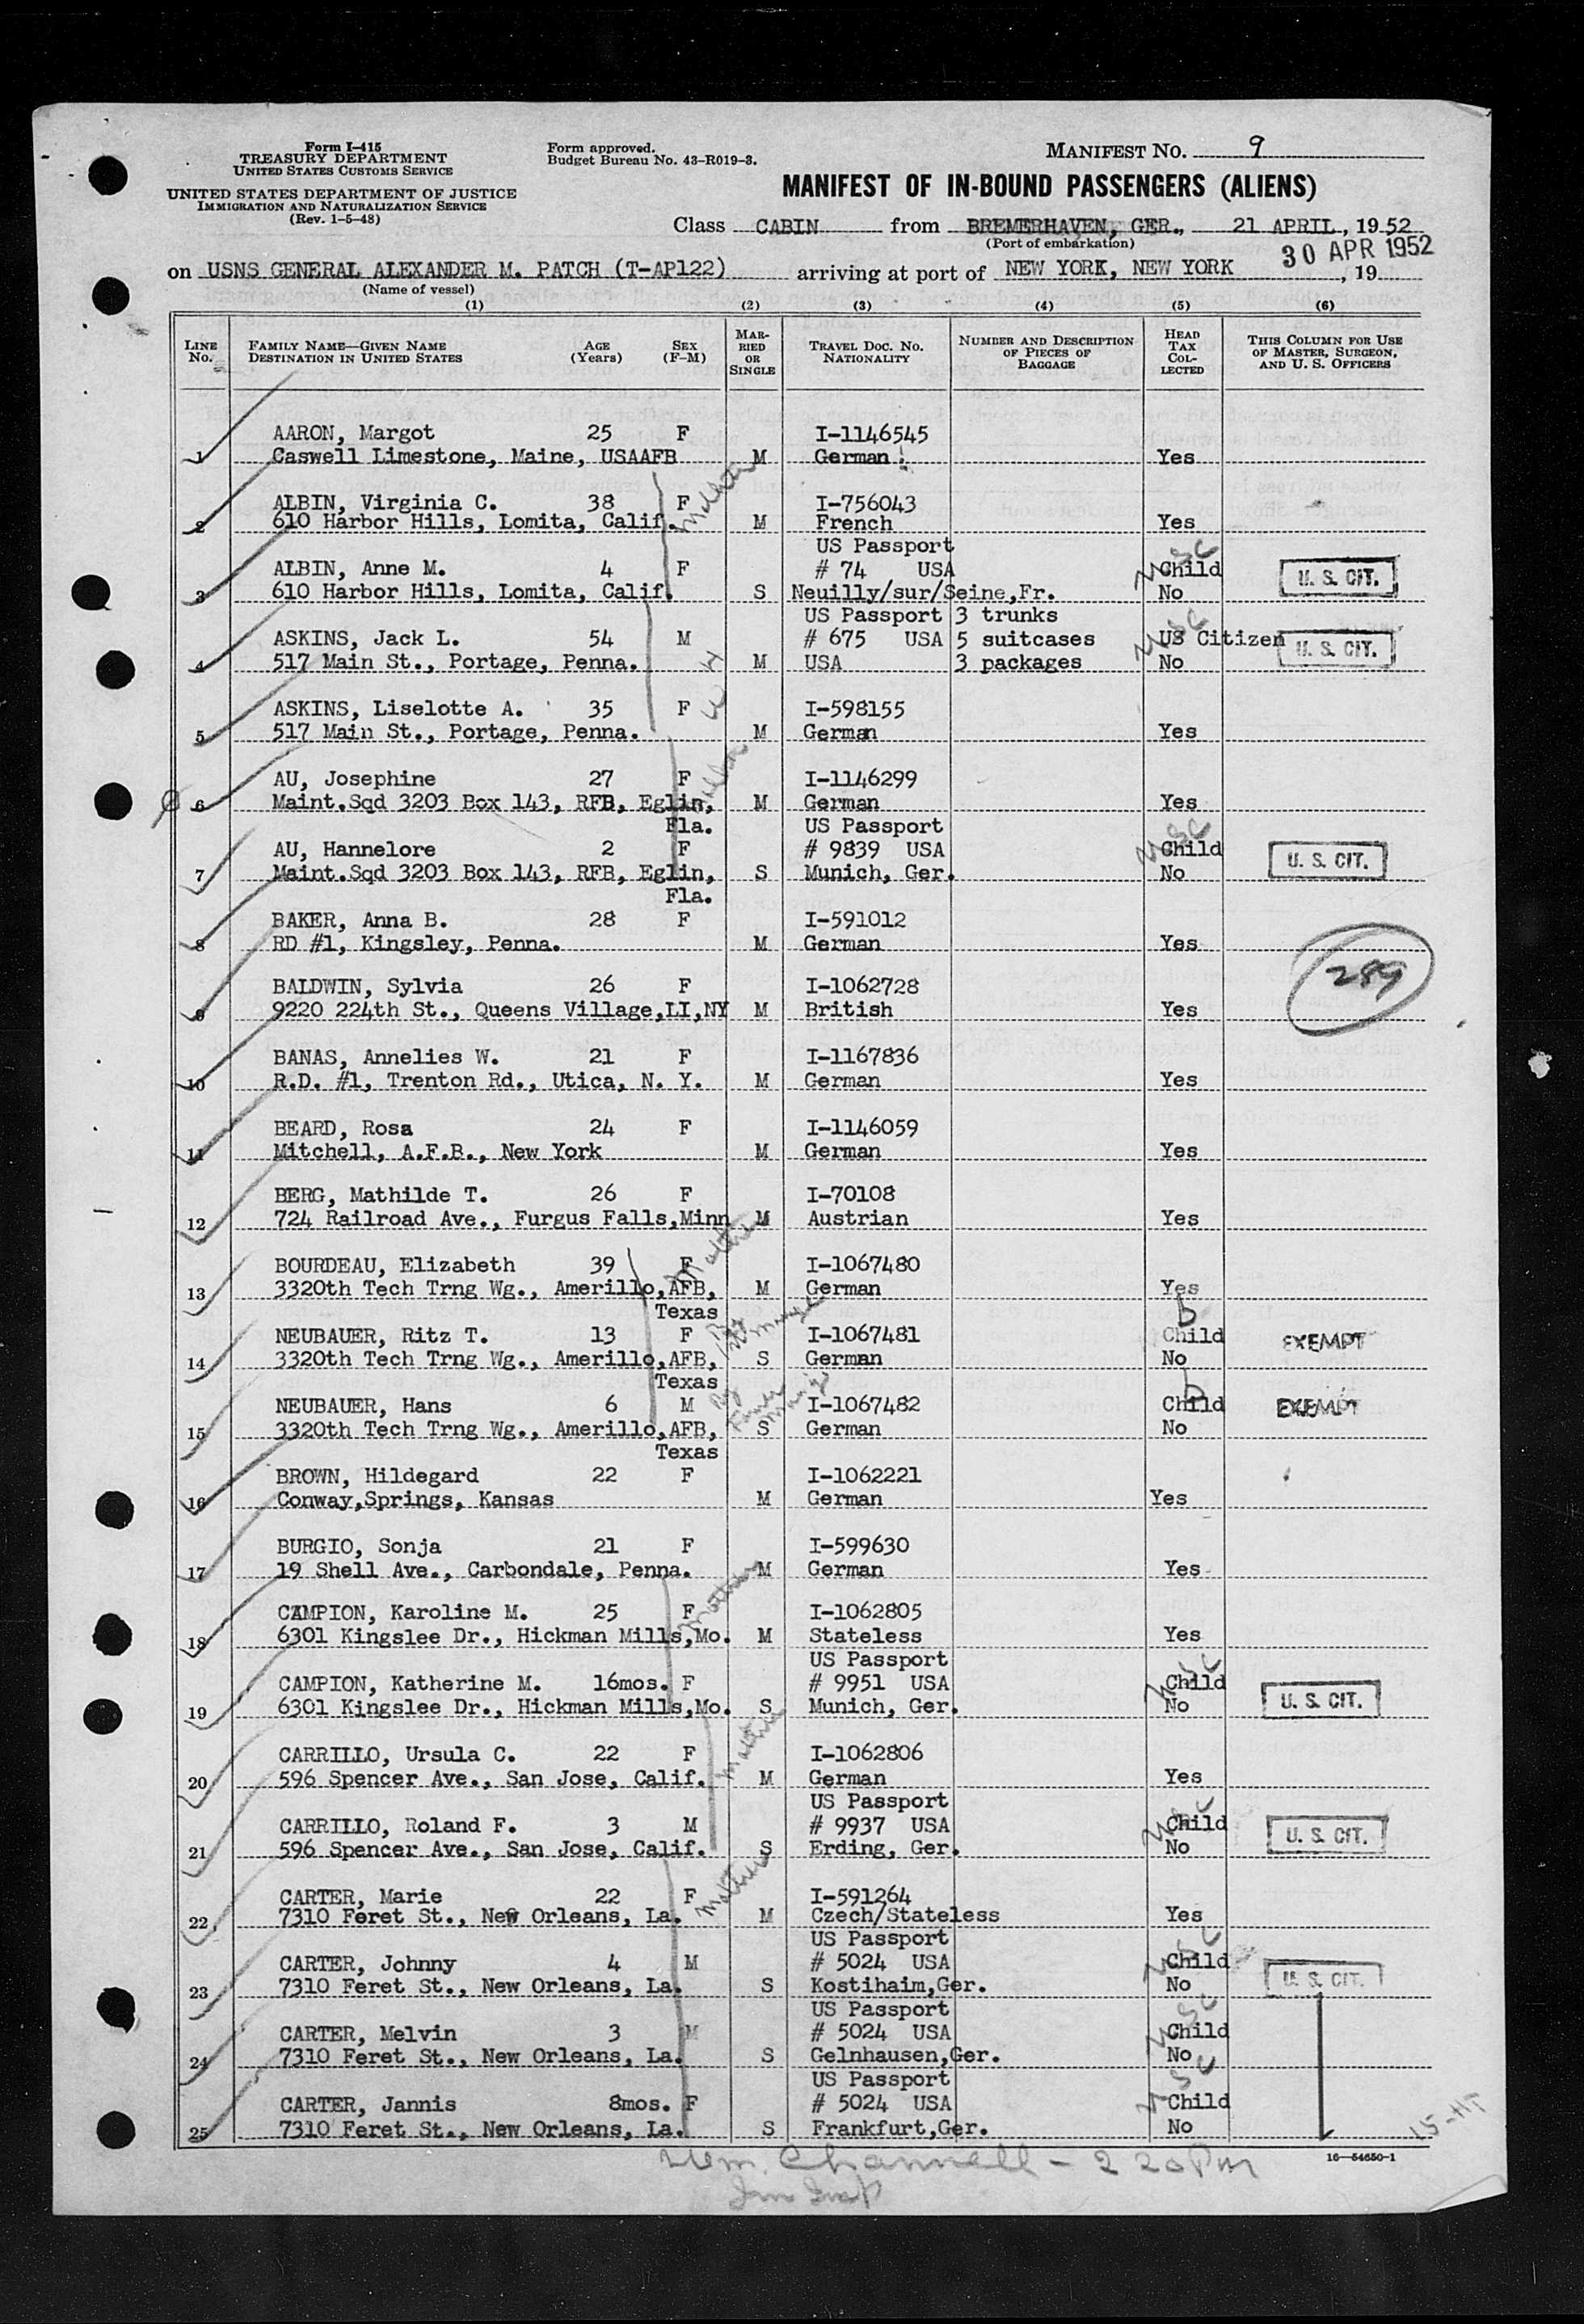 Form I-415
TREASURY DEPARTMENT
UNITED STATES CUSTOMS SERVICE
UNITED STATES DEPARTMENT OF JUSTICE
IMMIGRATION AND NATURALIZATION SERVICE
(Rev. 1-5-48)
Form approved.
Budget Bureau No. 43-R019-3.
MANIFEST No. 9
MANIFEST OF IN-BOUND PASSENGERS (ALIENS)
Class CABIN from BREMERHAVEN, GER., 21 APRIL, 1952
(Port of embarkation)
30 APR 1952
on USNS GENERAL ALEXANDER M. PATCH (T-AP122) arriving at port of NEW YORK, NEW YORK , 19
(Name of vessel)
(1) (2) (3) (4) (5) (6)
LINE No. FAMILY NAME—GIVEN NAME DESTINATION IN UNITED STATES AGE (Years) SEX (F-M) MARRIED OR SINGLE TRAVEL DOC. NO. NATIONALITY NUMBER AND DESCRIPTION OF PIECES OF BAGGAGE HEAD TAX COLLECTED THIS COLUMN FOR USE OF MASTER, SURGEON, AND U. S. OFFICERS
AARON, Margot 25 F I-1146545
1 Caswell Limestone, Maine, USAAFB M German Yes
ALBIN, Virginia C. 38 F I-756043
2 610 Harbor Hills, Lomita, Calif. M French Yes
Mother
US Passport
ALBIN, Anne M. 4 F # 74 USA Child U. S. CIT.
3 610 Harbor Hills, Lomita, Calif. S Neuilly/sur/Seine,Fr. No
USC
US Passport 3 trunks
ASKINS, Jack L. 54 M # 675 USA 5 suitcases US Citizen U. S. CIT.
4 517 Main St., Portage, Penna. M USA 3 packages No
USC
ASKINS, Liselotte A. 35 F I-598155
5 517 Main St., Portage, Penna. M German Yes
AU, Josephine 27 F I-1146299
6 Maint.Sqd 3203 Box 143, RFB, Eglin, M German Yes
Fla. US Passport
AU, Hannelore 2 F # 9839 USA Child U. S. CIT.
7 Maint.Sqd 3203 Box 143, RFB, Eglin, S Munich, Ger. No
USC
Fla.
BAKER, Anna B. 28 F I-591012
8 RD #1, Kingsley, Penna. M German Yes
289
BALDWIN, Sylvia 26 F I-1062728
9 9220 224th St., Queens Village,LI,NY M British Yes
BANAS, Annelies W. 21 F I-1167836
10 R.D. #1, Trenton Rd., Utica, N. Y. M German Yes
BEARD, Rosa 24 F I-1146059
11 Mitchell, A.F.B., New York M German Yes
BERG, Mathilde T. 26 F I-70108
12 724 Railroad Ave., Furgus Falls,Minn M Austrian Yes
Mother
BOURDEAU, Elizabeth 39 F I-1067480
13 3320th Tech Trng Wg., Amerillo,AFB, M German Yes
Texas b
NEUBAUER, Ritz T. 13 F I-1067481 Child EXEMPT
14 3320th Tech Trng Wg., Amerillo,AFB, S German No
Texas b
NEUBAUER, Hans 6 M I-1067482 Child EXEMPT
15 3320th Tech Trng Wg., Amerillo,AFB, S German No
Texas
BROWN, Hildegard 22 F I-1062221
16 Conway,Springs, Kansas M German Yes
BURGIO, Sonja 21 F I-599630
17 19 Shell Ave., Carbondale, Penna. M German Yes
Mother
CAMPION, Karoline M. 25 F I-1062805
18 6301 Kingslee Dr., Hickman Mills,Mo. M Stateless Yes
US Passport
CAMPION, Katherine M. 16mos. F # 9951 USA Child U. S. CIT.
19 6301 Kingslee Dr., Hickman Mills,Mo. S Munich, Ger. No
USC
Mother
CARRILLO, Ursula C. 22 F I-1062806
20 596 Spencer Ave., San Jose, Calif. M German Yes
US Passport
CARRILLO, Roland F. 3 M # 9937 USA Child U. S. CIT.
21 596 Spencer Ave., San Jose, Calif. S Erding, Ger. No
USC
Mother
CARTER, Marie 22 F I-591264
22 7310 Feret St., New Orleans, La. M Czech/Stateless Yes
US Passport
CARTER, Johnny 4 M # 5024 USA Child U. S. CIT.
23 7310 Feret St., New Orleans, La. S Kostihaim,Ger. No
USC
US Passport
CARTER, Melvin 3 M # 5024 USA Child
24 7310 Feret St., New Orleans, La. S Gelnhausen,Ger. No
USC
US Passport
CARTER, Jannis 8mos. F # 5024 USA Child
25 7310 Feret St., New Orleans, La. S Frankfurt,Ger. No
USC
Wm. Channell - 2 20 PM
16—54650-1